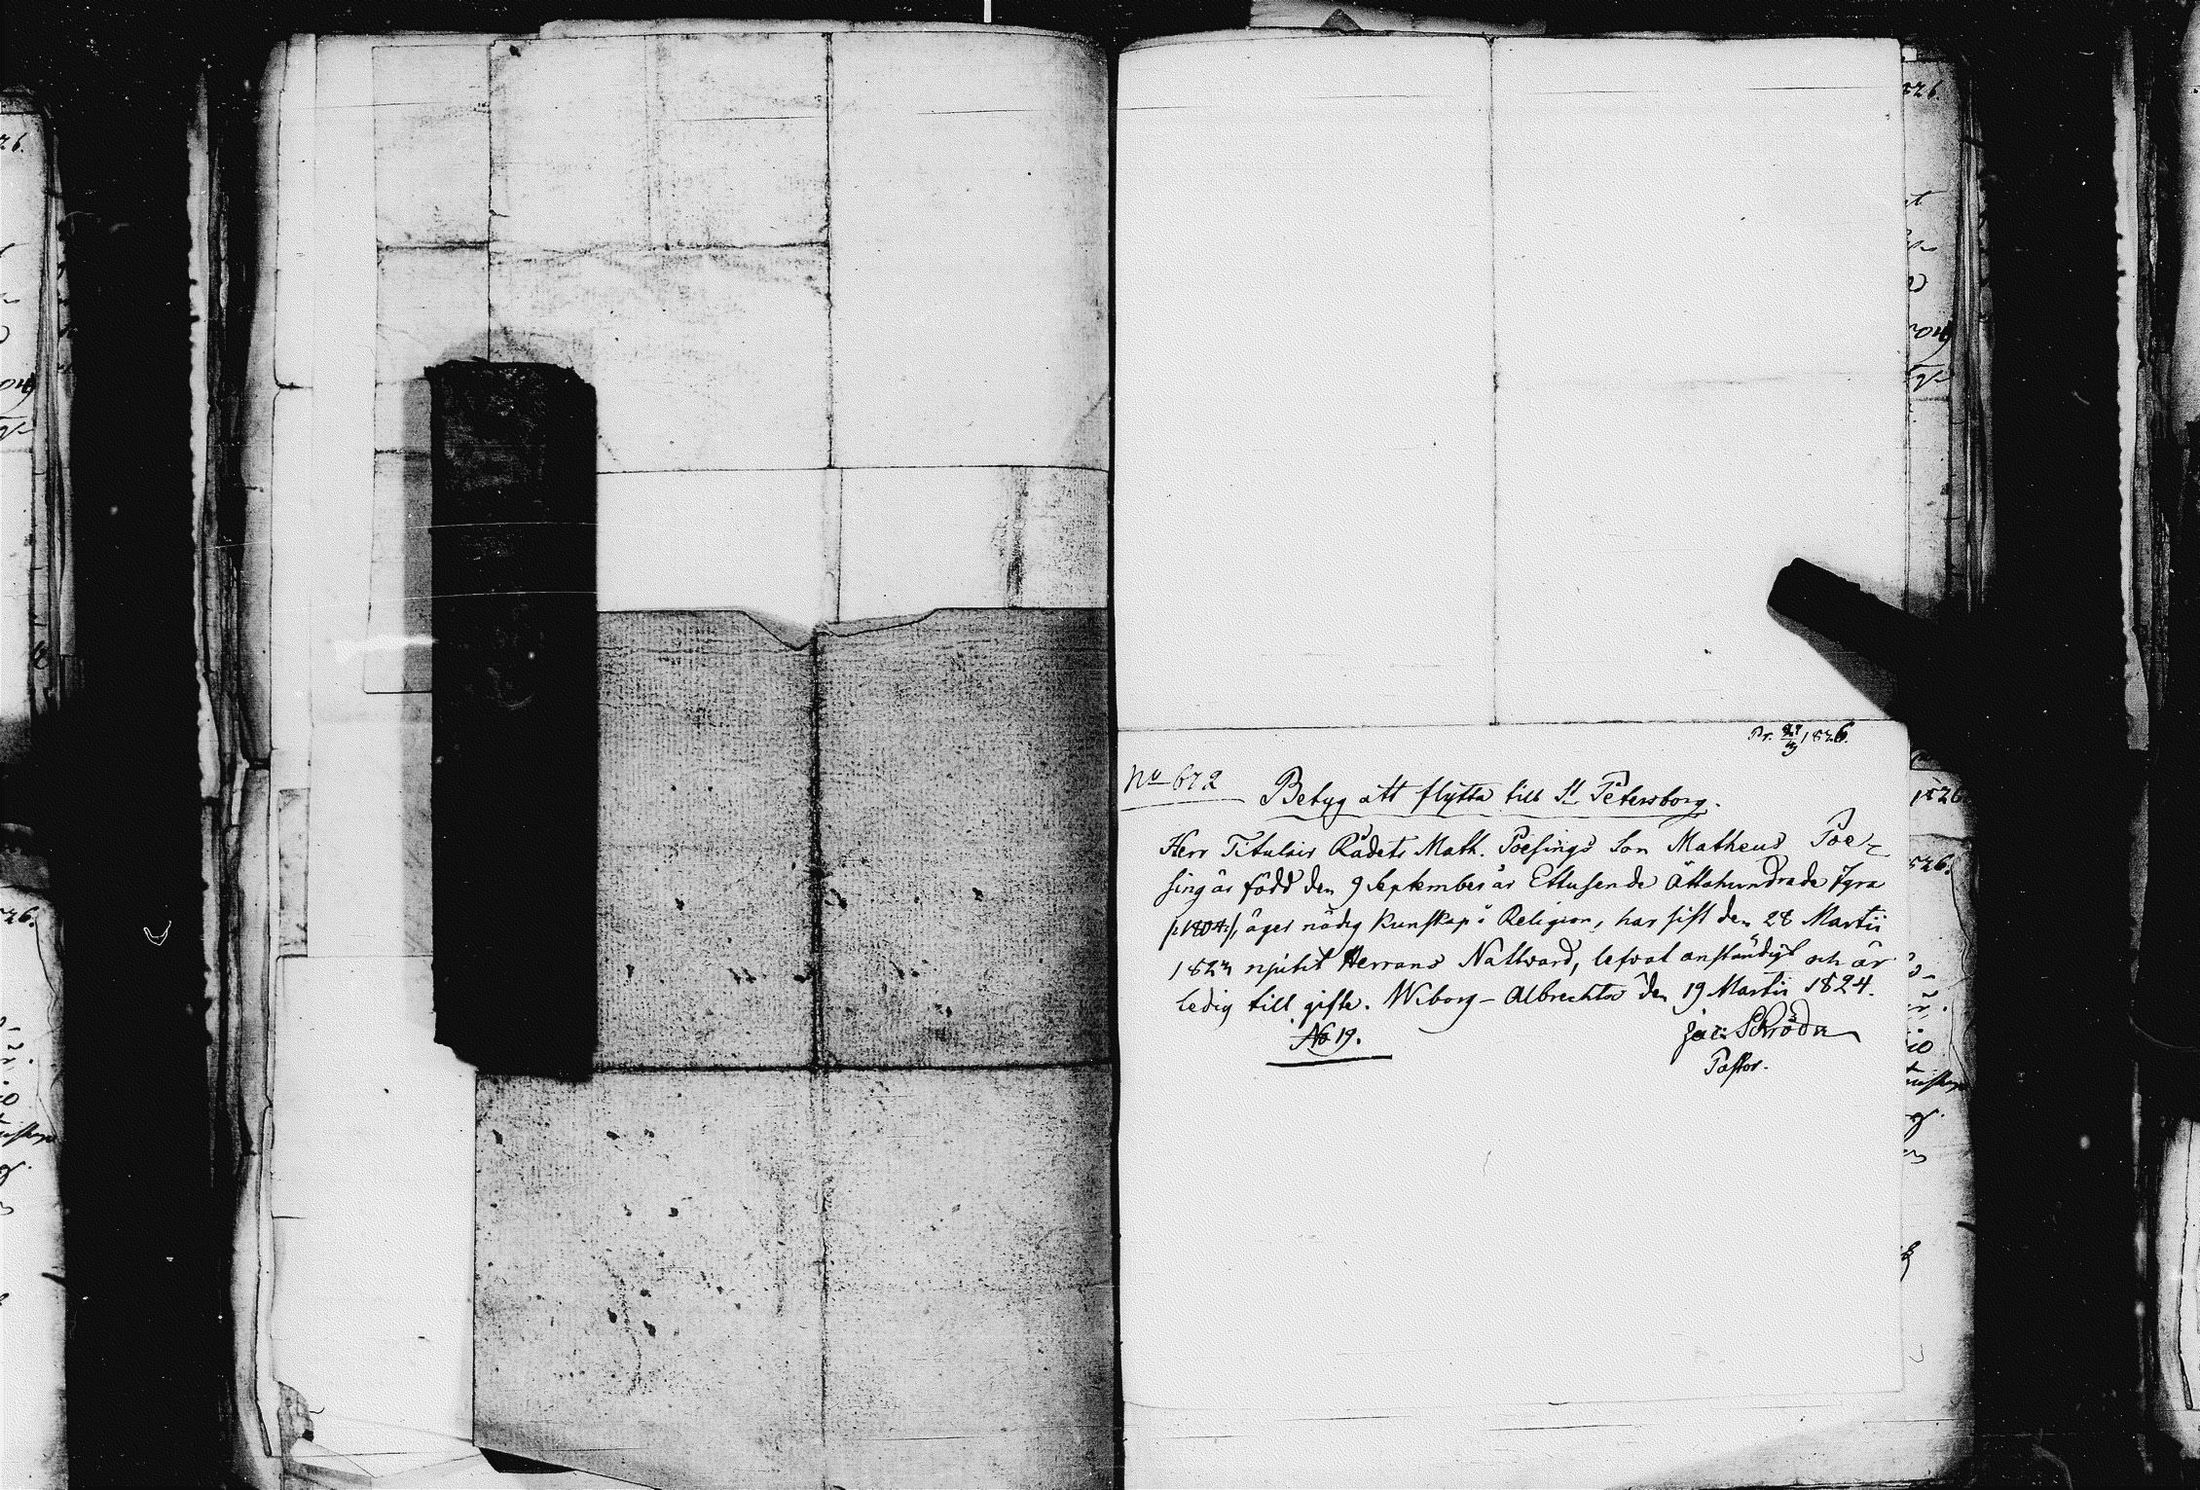 Pr. 1826.
No 672
Betyg att flytta till St Petersborg.
Herr Titulair Rådets Math. Poesings Son Matheus Poe-
sing är född den 9 September år Ettusende Åttahundrade fyra
/:1804:/, äger nödig kunskap i Religion, har sist den 28 Martii
1823 njutit Herrans Nattvard, lefvat anständigt och är
ledig till gifte. Wiborg - Albrechts den 19 Martii 1824.
No 19.
Jac: Schröder
Pastor.